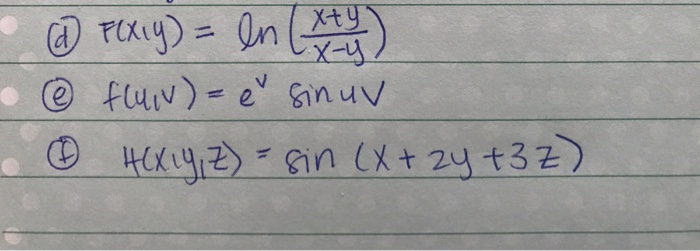 (d) F(x,y) = ln (x+y / x-y)
(e) f(u,v) = e^v sin uv
(f) H(x,y,z) = sin (x + 2y + 3z)